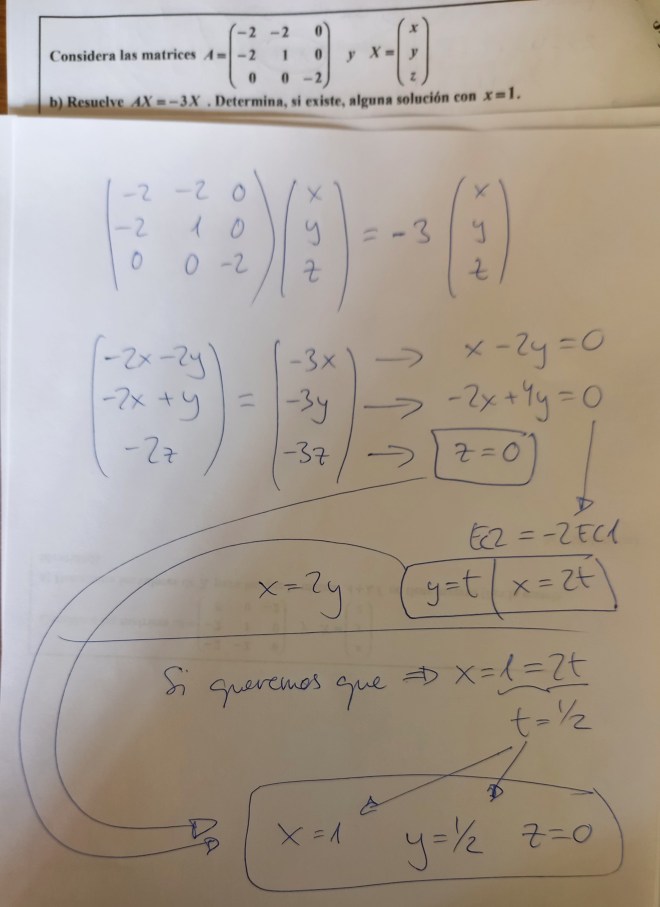 Considera las matrices A = (-2 -2 0
-2 1 0
0 0 -2) y X = (x
y
z)
b) Resuelve AX = -3X . Determina, si existe, alguna solución con x = 1.
(-2 -2 0
-2 1 0
0 0 -2) (x
y
z) = -3 (x
y
z)
(-2x -2y
-2x + y
-2z) = (-3x
-3y
-3z)
→ x - 2y = 0
→ -2x + 4y = 0
→ z = 0
Ec2 = -2Ec1
x = 2y y = t | x = 2t
Si queremos que ⇒ x = 1 = 2t
t = 1/2
x = 1 y = 1/2 z = 0